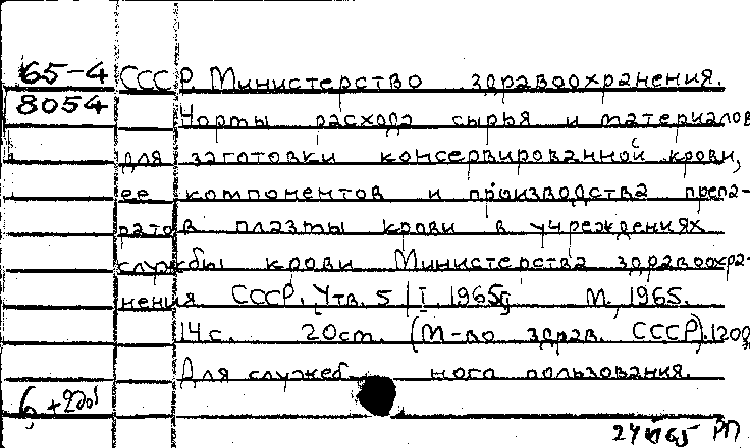 65-4 СССР Министерство здравоохранения.
8054 Нормы расхода сырья и материалов
для заготовки консервированной крови,
ее компонентов и производства препа-
ратов плазмы крови в учреждениях
службы крови Министерства здравоохра-
нения СССР. Утв. 5/I 1965г. М., 1965.
14с. 20см. (М-во здрав. СССР). 1200
Для служеб- ного пользования.